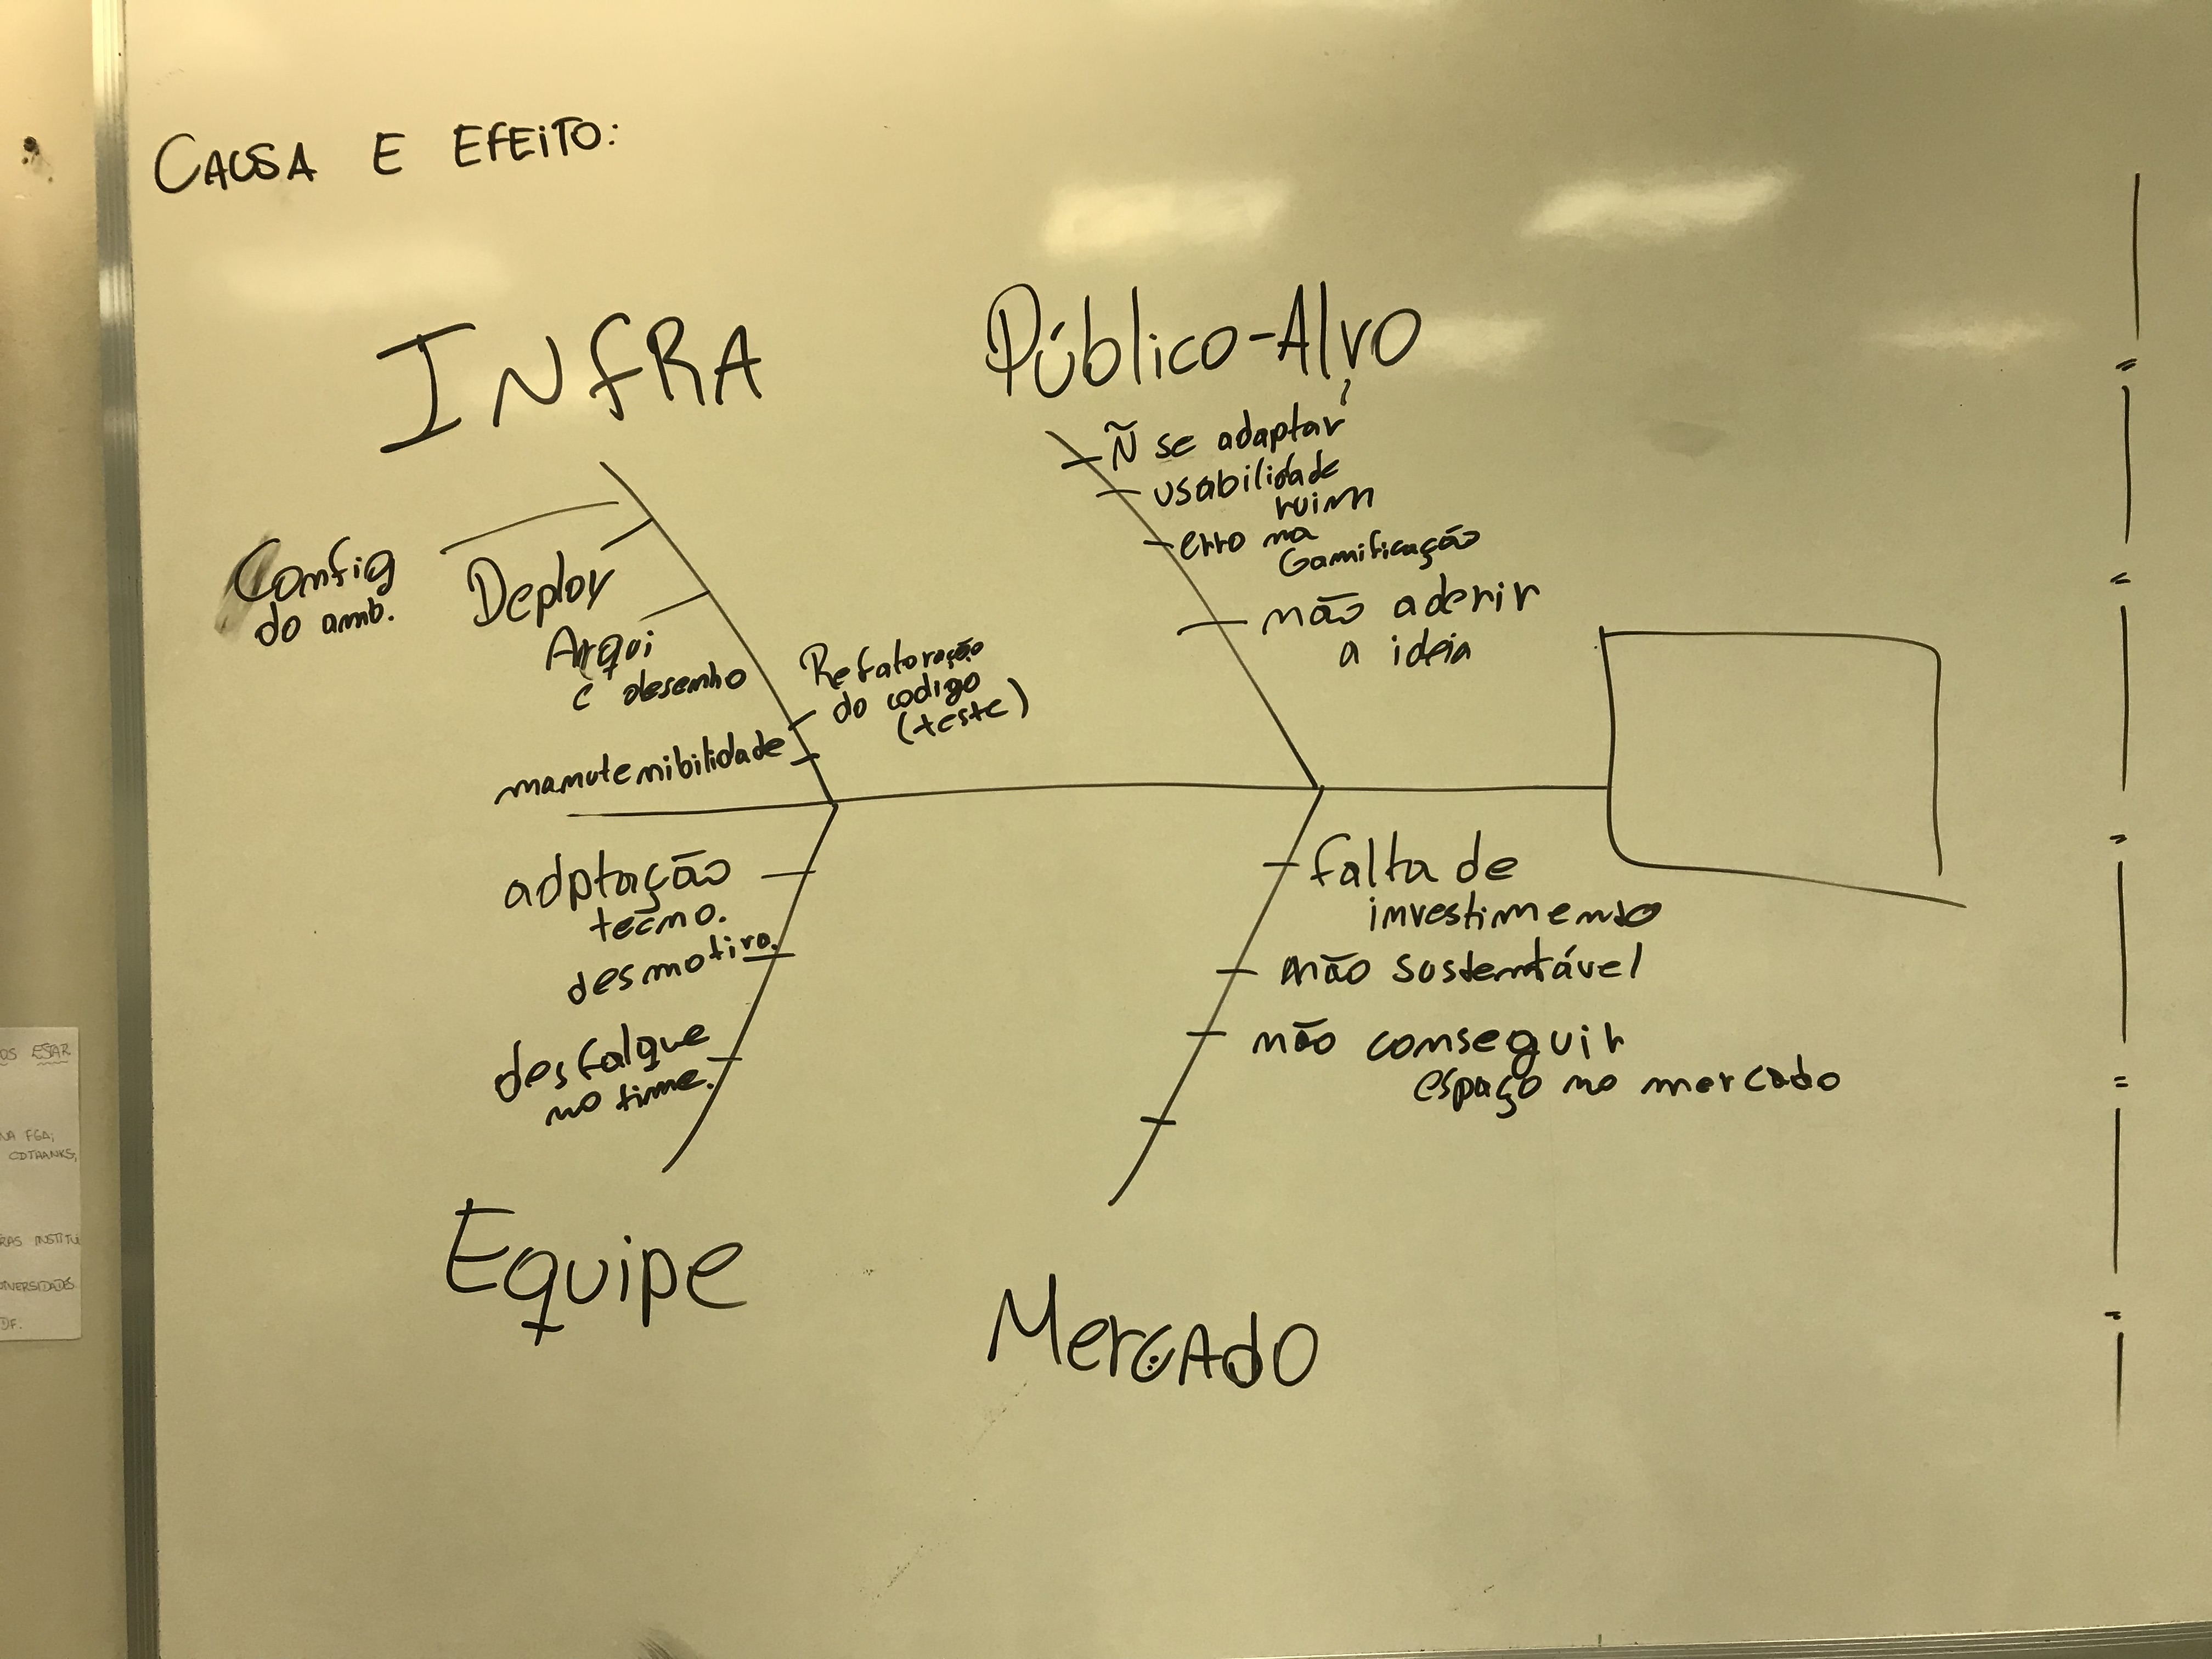 CAUSA E EFEITO:
INFRA
Config
do amb.
Deploy
Arqui
e desenho
Refatoração
do codigo
(teste)
manutenibilidade
Público-Alvo
Ñ se adaptar
usabilidade
ruim
erro na
Gamificação
não aderir
a ideia
adptação
tecno.
desmotiva.
desfalque
no time.
Equipe
falta de
investimento
não sustentável
não conseguir
espaço no mercado
Mercado
OS ESTAR
NA FGA;
RAS INSTITUI
DF.